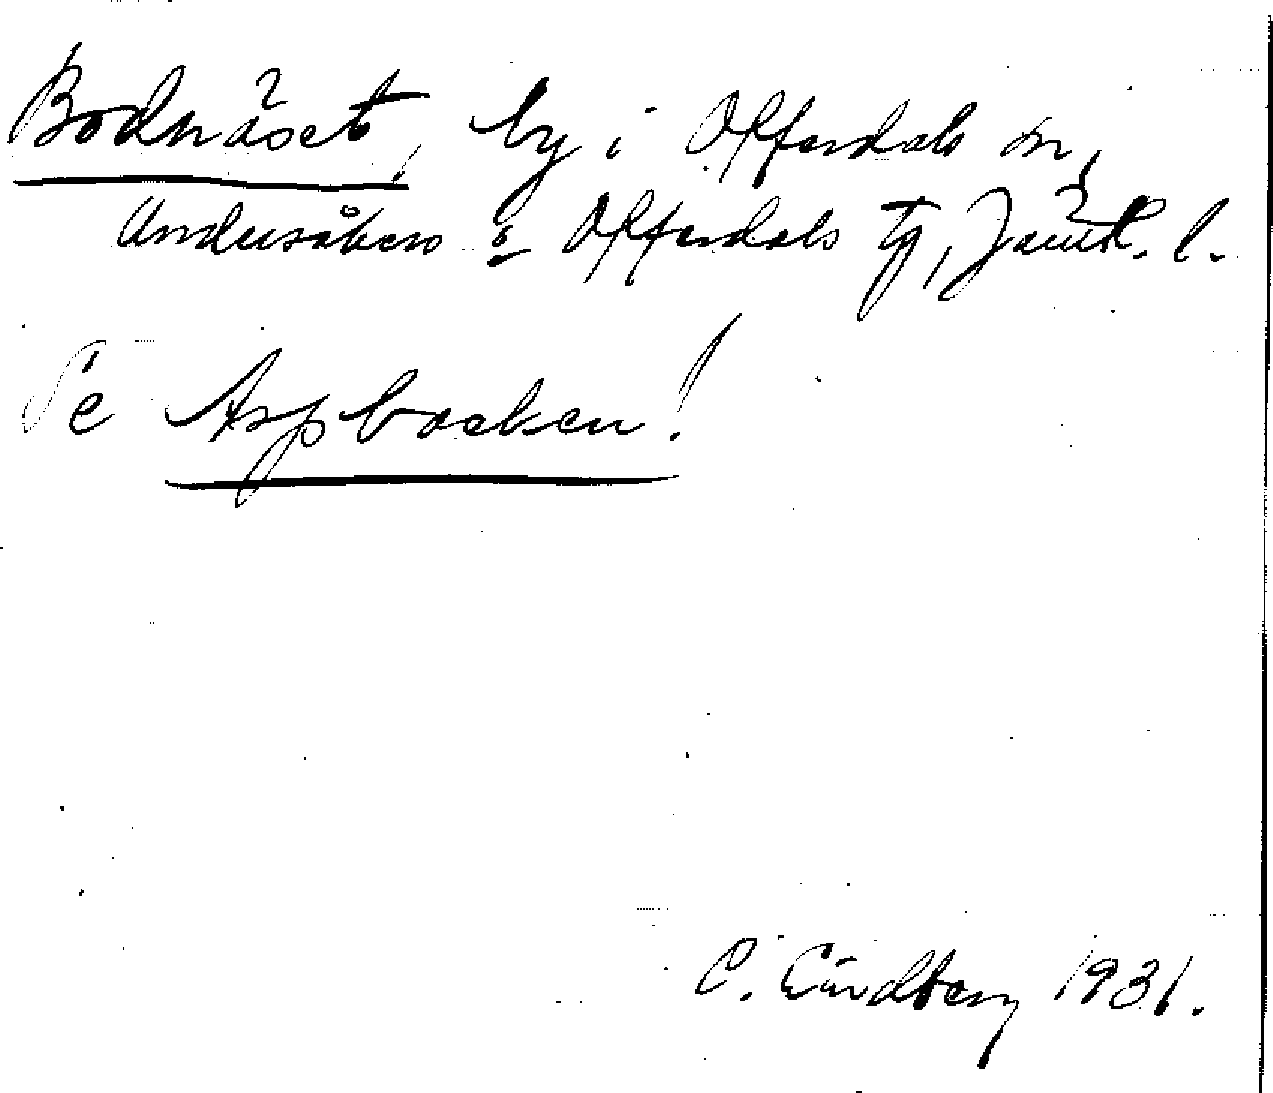 Bodnäset, by i Offerdals sn,
Andersåkers o Offerdals tg, Jämtl. l.
Se Aspbacken!
C. Lindberg 1931.